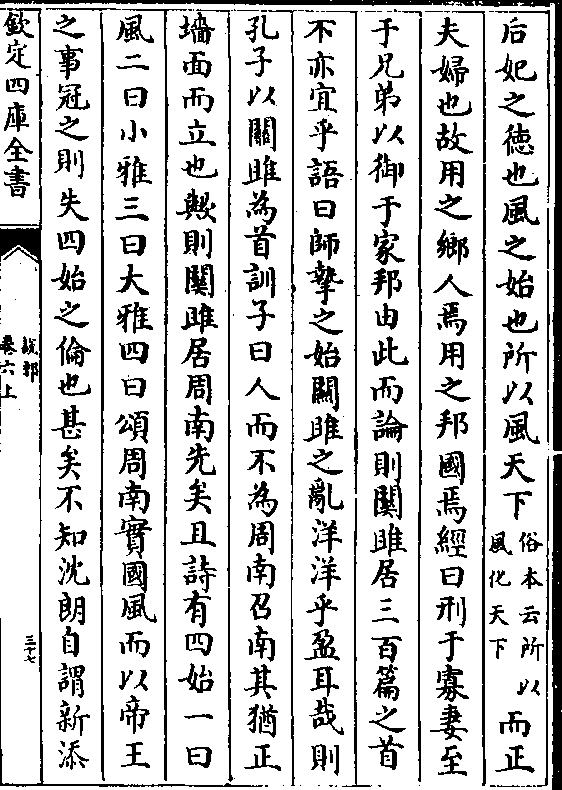 后妃之徳也風之始也所以風天下俗本云所以風化天下而正
夫婦也故用之鄉人焉用之邦國焉經曰刑于寡妻至
于兄弟以御于家邦由此而論則關雎居三百篇之首
不亦宜乎語曰師摯之始關雎之亂洋洋乎盈耳哉則
孔子以關雎為首訓子曰人而不為周南召南其猶正
墻面而立也歟則關雎居周南先矣且詩有四始一曰
風二曰小雅三曰大雅四曰頌周南實國風而以帝王
之事冠之則失四始之倫也甚矣不知沈朗自謂新添
欽定四庫全書
說郛
卷六上
三十七